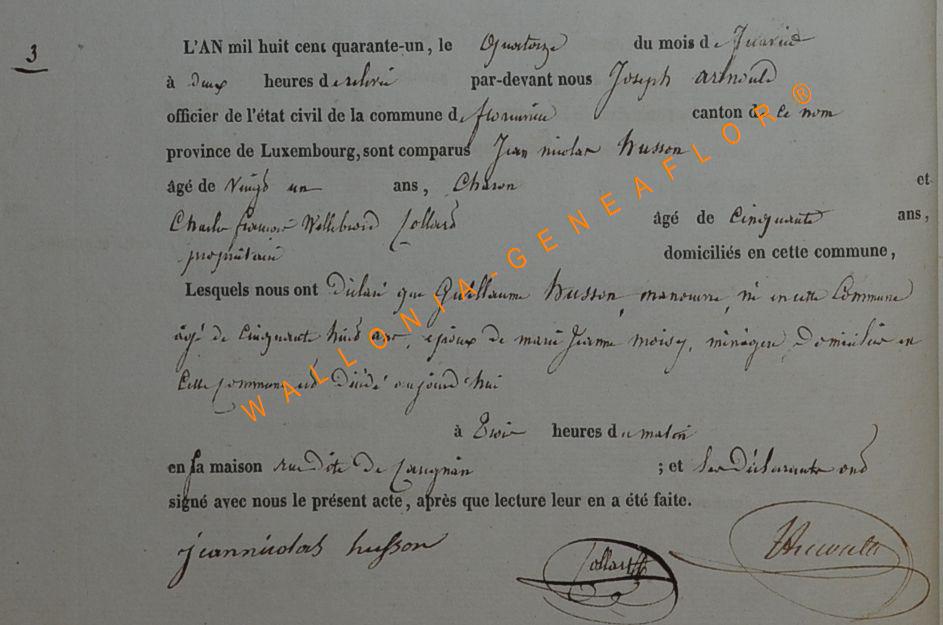 3
L'AN mil huit cent quarante-un, le Quatorze du mois de Janvier
à deux heures de relevée par-devant nous Joseph Arnould
officier de l'état civil de la commune de florenville canton de ce nom
province de Luxembourg, sont comparus Jean nicolas husson
âgé de Vingt un ans, Charon et
Charles françois Willebrord Collard âgé de Cinquante ans,
propriétaire domiciliés en cette commune,
Lesquels nous ont déclaré que Guillaume husson, manoeuvre, né en cette Commune
âgé de Cinquante huit ans, époux de marie Jeanne moisy, ménagère, Domiciliés en
Cette commune est décédé aujourd'hui
à trois heures du matin
en sa maison rue dite De Carignan ; et les déclarants ont
signé avec nous le présent acte, après que lecture leur en a été faite.
jeannicolas husson Collard JArnould
WALLONIA-GENEAFLOR®